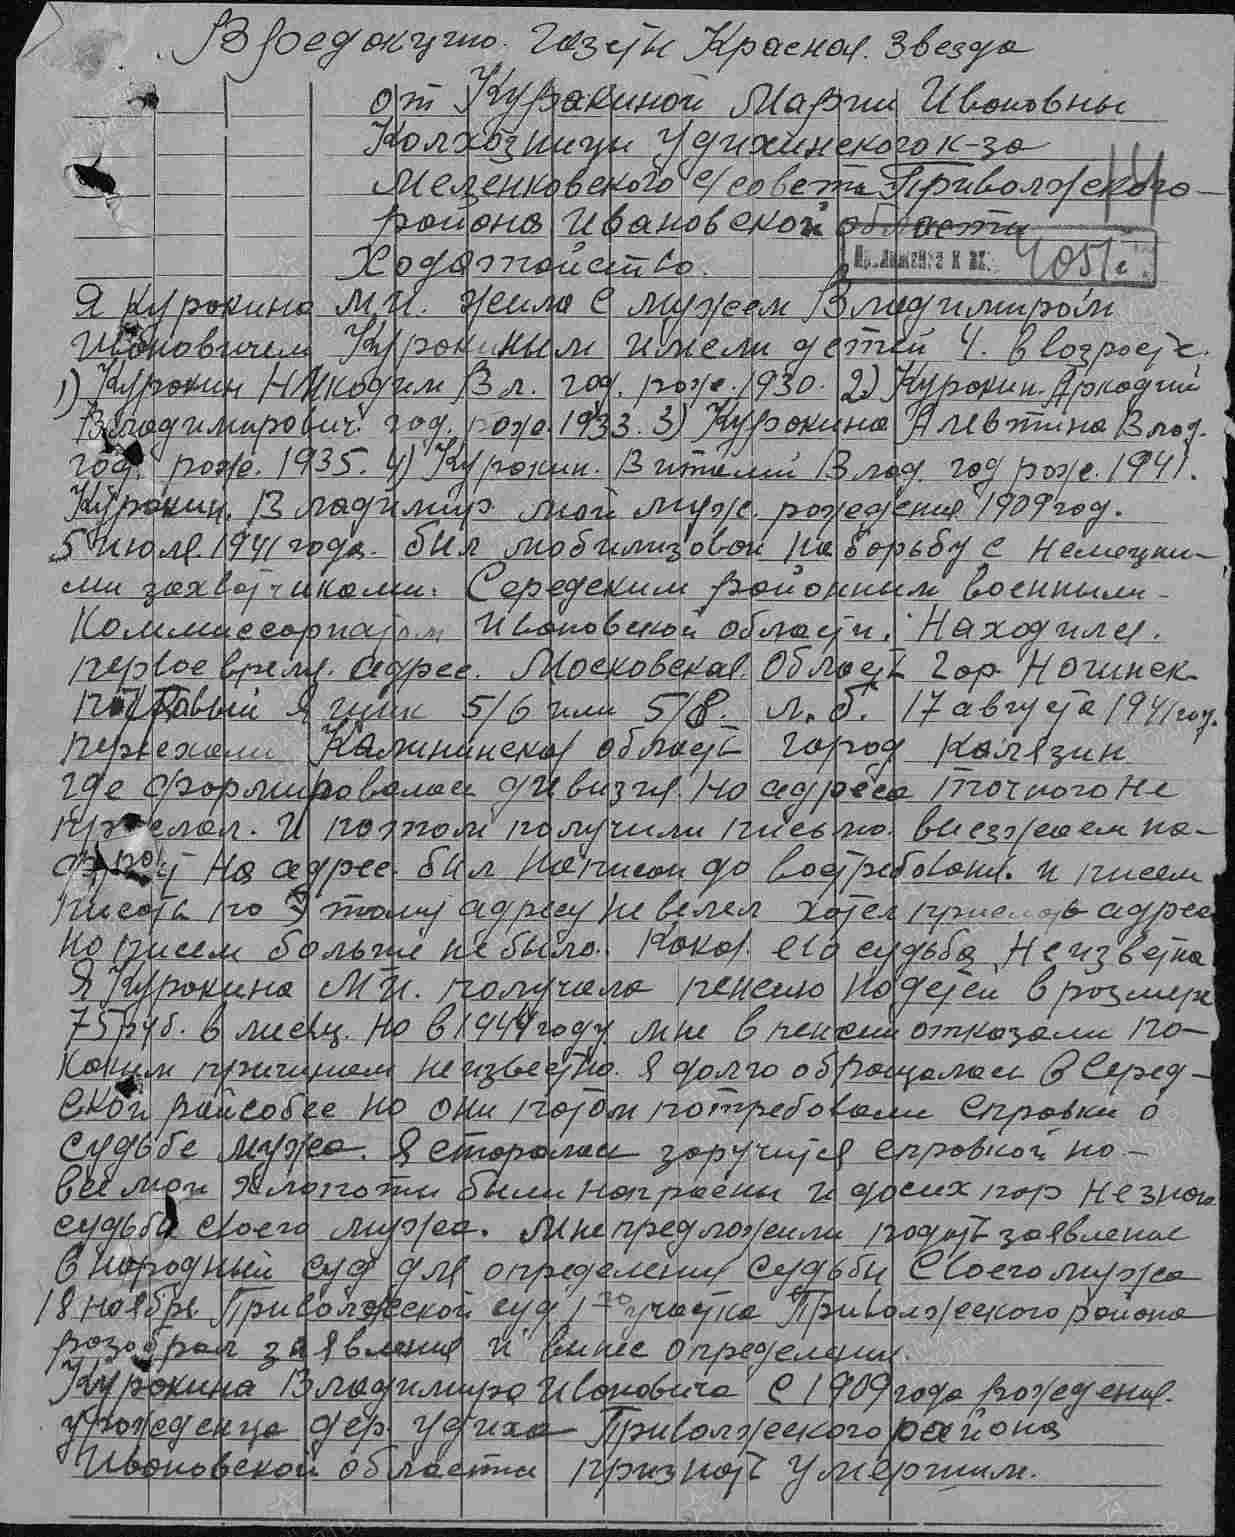 В Редакцию. газеты Красная. Звезда
от Куракиной Марии Ивановны
Колхозницы Удихинского к-за
Меленковского с/совета Приволжского
района Ивановской области
14
Приложение к вх. 4051с
Ходатайство.
Я Куракина М.И. жила с мужем Владимиром
Ивановичем Куракиным имели детей 4. в возрасте.
1) Куракин Никодим Вл. год. рож. 1930. 2) Куракин. Аркадий
Владимирович. год. рож. 1933. 3) Куракина Алевтина Влад.
год. рож. 1935. 4) Куракин. Виталий Влад. год рож. 1941.
Куракин. Владимир мой муж. рождения 1909 год.
5 июля 1941 года. был мобилизован на борьбу с немецки-
ми захватчиками. Середским районным военным-
Коммиссариатом Ивановской области. Находился.
первое время. адрес. Московская. Область Гор. Ногинск.
почтовый Ящик 5/6 или 5/8. л.б. 17 августа 1941 год.
переехали Калининская область город Калязин
где формировалась дивизия. но адреса точного не
прислал. И потом получили письмо. выезжаем на-
фронт на адрес. был написан до востребования. и писем
писать по этому адресу не велел хотел прислать адрес
но писем больше не было. Какая. его судьба неизвестна
Я Куракина М.И. получала пенсию на детей в размере
75 руб. в месяц. но в 1944 году мне в пенсии отказали по-
каким причинам неизвестно. Я долго обращалась в Серед-
ской райсобес но они потом потребовали справки о
судьбе мужа. Я старалась заручится справкой но-
все мои хлопоты были напрасны и досих пор незнаю
судьбы своего мужа. Мне предложили подать заявление
в народный суд для определения судьбы своего мужа
18 ноября Приволжской суд 1го участка Приволжского района
разобрал заявления и вынес определения.
Куракина Владимира Ивановича с 1909 года рождения.
урожденца дер. Удиха Приволжского района
Ивановской области признать умершим.